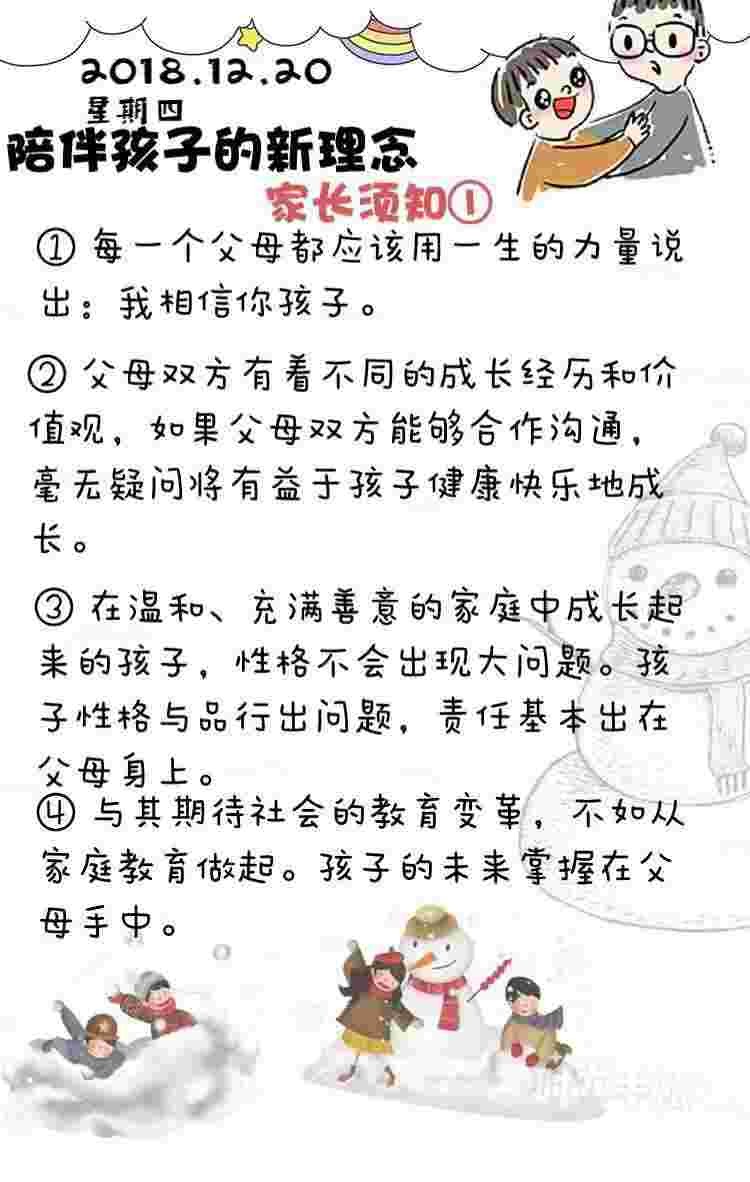 2018.12.20
星期四
陪伴孩子的新理念
家长须知①
① 每一个父母都应该用一生的力量说
出：我相信你孩子。
② 父母双方有着不同的成长经历和价
值观，如果父母双方能够合作沟通，
毫无疑问将有益于孩子健康快乐地成
长。
③ 在温和、充满善意的家庭中成长起
来的孩子，性格不会出现大问题。孩
子性格与品行出问题，责任基本出在
父母身上。
④ 与其期待社会的教育变革，不如从
家庭教育做起。孩子的未来掌握在父
母手中。